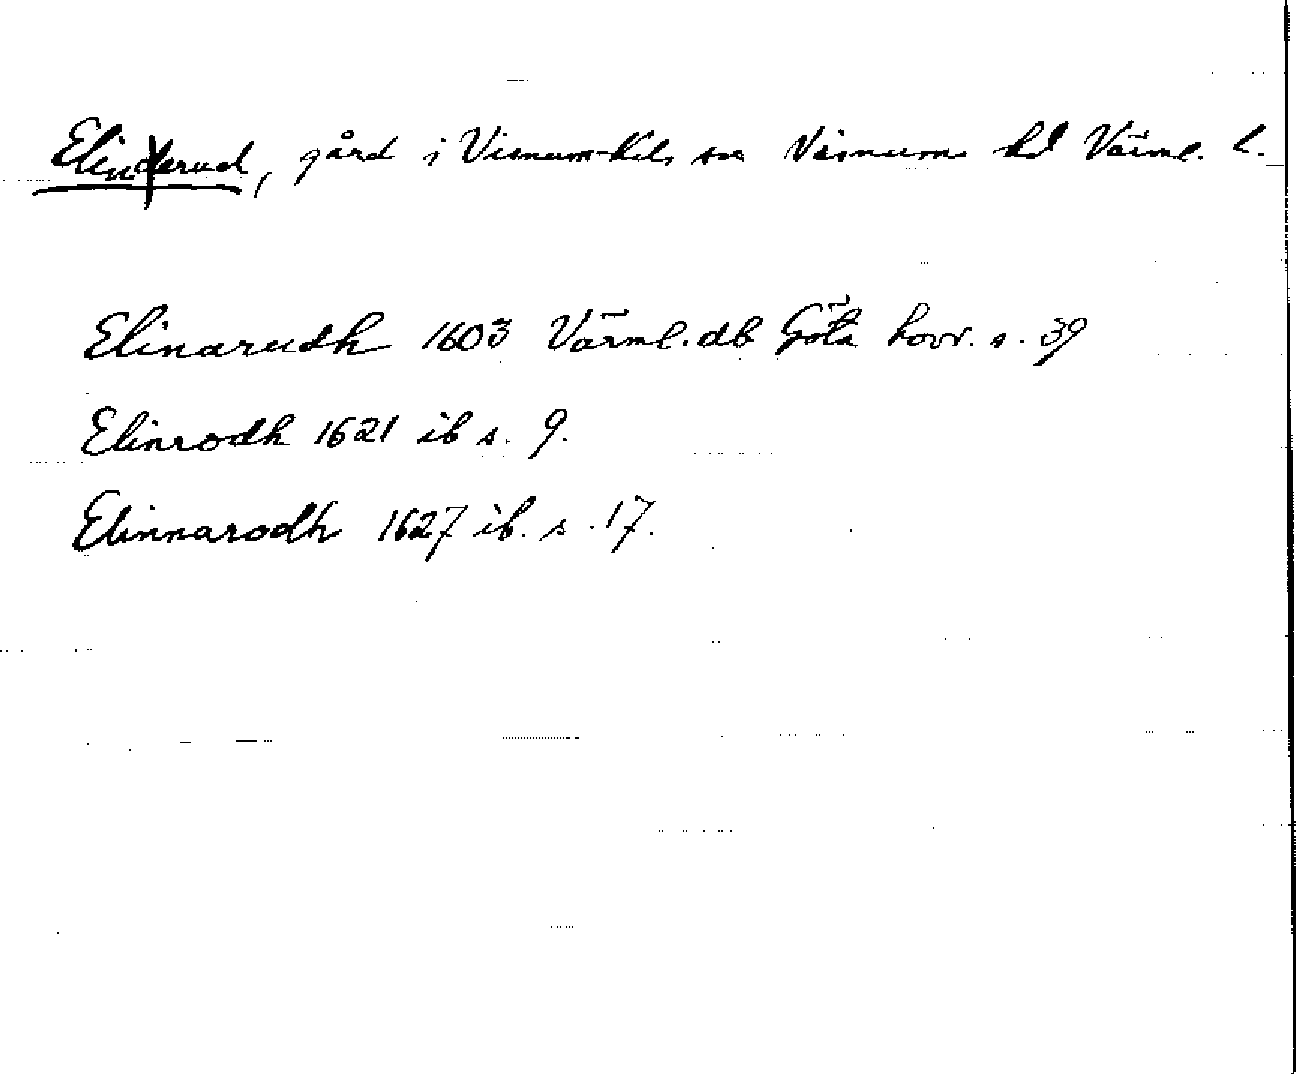 Elinderud, gård i Visnum-Kils sn Visnums hd Värml. l.
Elinarudh 1603 Värml.db Göta hovr. s. 39
Elinrodh 1621 ib s. 9.
Elinnarodh 1627 ib. s. 17.